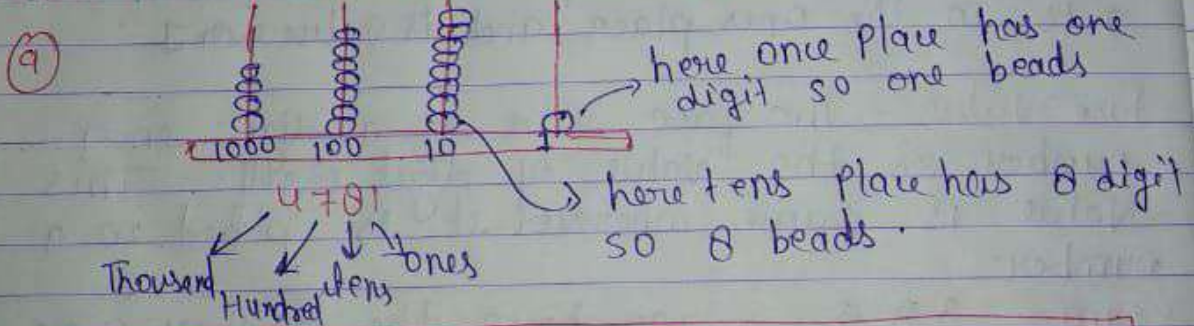 9
here once place has one
digit so one beads
1000 100 10 1
here tens place has 8 digit
so 8 beads.
4781
Thousand Hundred tens ones